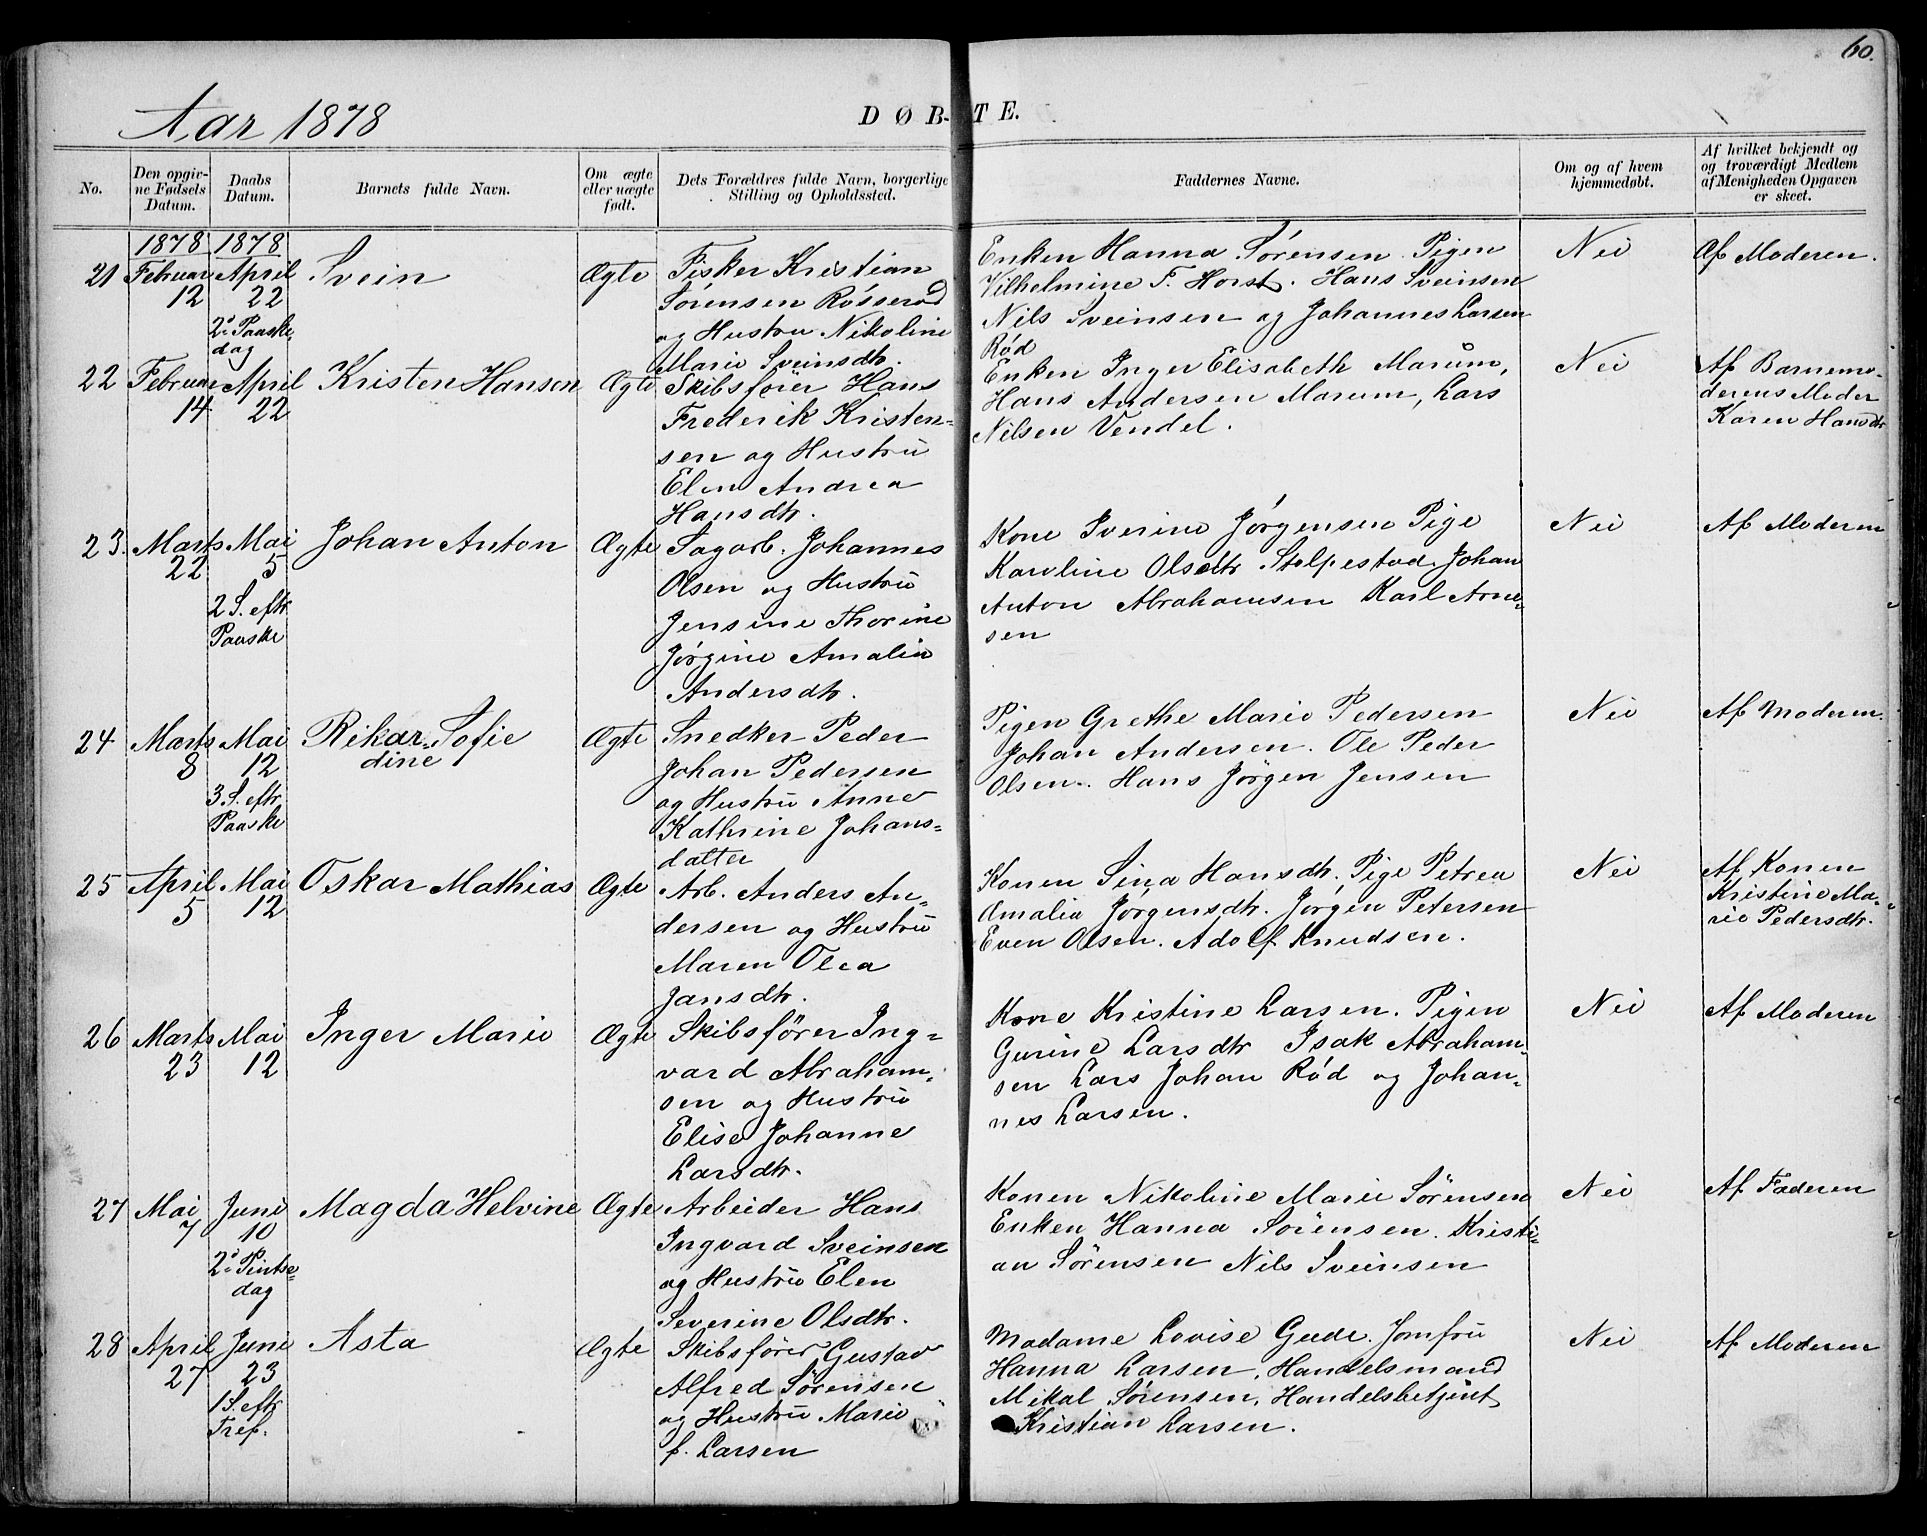 60.
Aar 1878
DØB-TE.
No.
Den opgiv-
ne Fødsels
Datum.
Daabs
Datum.
Barnets fulde Navn.
Om ægte
eller uægte
født.
Dets Forældres fulde Navn, borgerlige
Stilling og Opholdssted.
Faddernes Navne.
Om og af hvem
hjemmedøbt.
Af hvilket bekjendt og
og troværdigt Medlem
af Menigheden Opgaven
er skeet.
1878 1878
21 Februar 12
April 22
2. Paaske
dag
Svein
Ægte
Fisker Kristian
Sørensen Røsserød
og Hustru Nikoline
Marie Sveinsdtr.
Enken Hanna Sørensen. Pigen
Vilhelmine F. Horst. Hans Sveinsen
Nils Sveinsen og Johannes Larsen
Rød
Nei
Af Moderen.
22 Februar 14
April 22
Kristen Hansen
Ægte
Skibsfører Hans
Frederik Kristen-
sen og Hustru
Elen Andrea
Hansdtr.
Enken Inger Elisabeth Marum,
Hans Andersen Marum, Lars
Nilsen Vendel.
Nei
Af Barnemo-
derens Moder
Karen Hansdtr
23. Marts 22
Mai 5
2 S. eftr.
Paaske
Johan Anton
Ægte
Sagarb. Johannes
Olsen og Hustru
Jensine Thorine
Jørgine Amalia
Andersdtr.
Kone Iverine Jørgensen Pige
Karoline Olsdtr Stolpestad. Johan
Anton Abrahamsen Karl Arne-
sen
Nei
Af Moderen
24 Marts 8
Mai 12
3 S. eftr.
Paaske
Rikar- Sofie
dine
Ægte
Snedker Peder
Johan Pedersen
og Hustru Anne
Kathrine Johans-
datter
Pigen Grethe Marie Pedersen
Johan Andersen. Ole Peder
Olsen. Hans Jørgen Jensen
Nei
Af Moderen.
25 April 5
Mai 12
Oskar Mathias
Ægte
Arb. Anders An-
dersen og Hustru
Maren Olea
Jansdtr.
Konen Sina Hansdtr. Pige Petrea
Amalia Jørgensdtr. Jørgen Petersen
Even Olsen. Adolf Knudsen.
Nei
Af Konen
Kristine Ma-
rie Pedersdtr.
26 Marts 23
Mai 12
Inger Marie
Ægte
Skibsfører Ing-
vard Abraham-
sen og Hustru
Elise Johanne
Larsdtr.
Kone Kristine Larsen. Pigen
Gurine Larsdtr Isak Abraham-
sen Lars Johan Rød og Johan-
nes Larsen.
Nei
Af Moderen
27 Mai 7
Juni 10
2. Pintse-
dag
Magda Helvine
Ægte
Arbeider Hans
Ingvard Sveinsen
og Hustru Elen
Severine Olsdtr.
Konen Nikoline Marie Sørensen
Enken Hanna Sørensen. Kristi-
an Sørensen Nils Sveinsen
Nei
Af Faderen
28 April 27
Juni 23
1 S. eftr
Tref.
Asta
Ægte
Skibsfører Gustav
Alfred Sørensen
og Hustru Marie
f. Larsen
Madame Lovise Gude. Jomfru
Hanna Larsen, Handelsmand
Mikal Sørensen, Handelsbetjent
Kristian Larsen.
Nei
Af Moderen